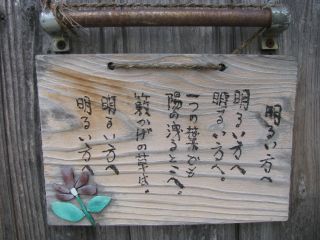 明るい方へ
明るい方へ
明るい方へ。
一つの葉でも
陽の洩るとこへ。
籔かげの草は。
明るい方へ
明るい方へ